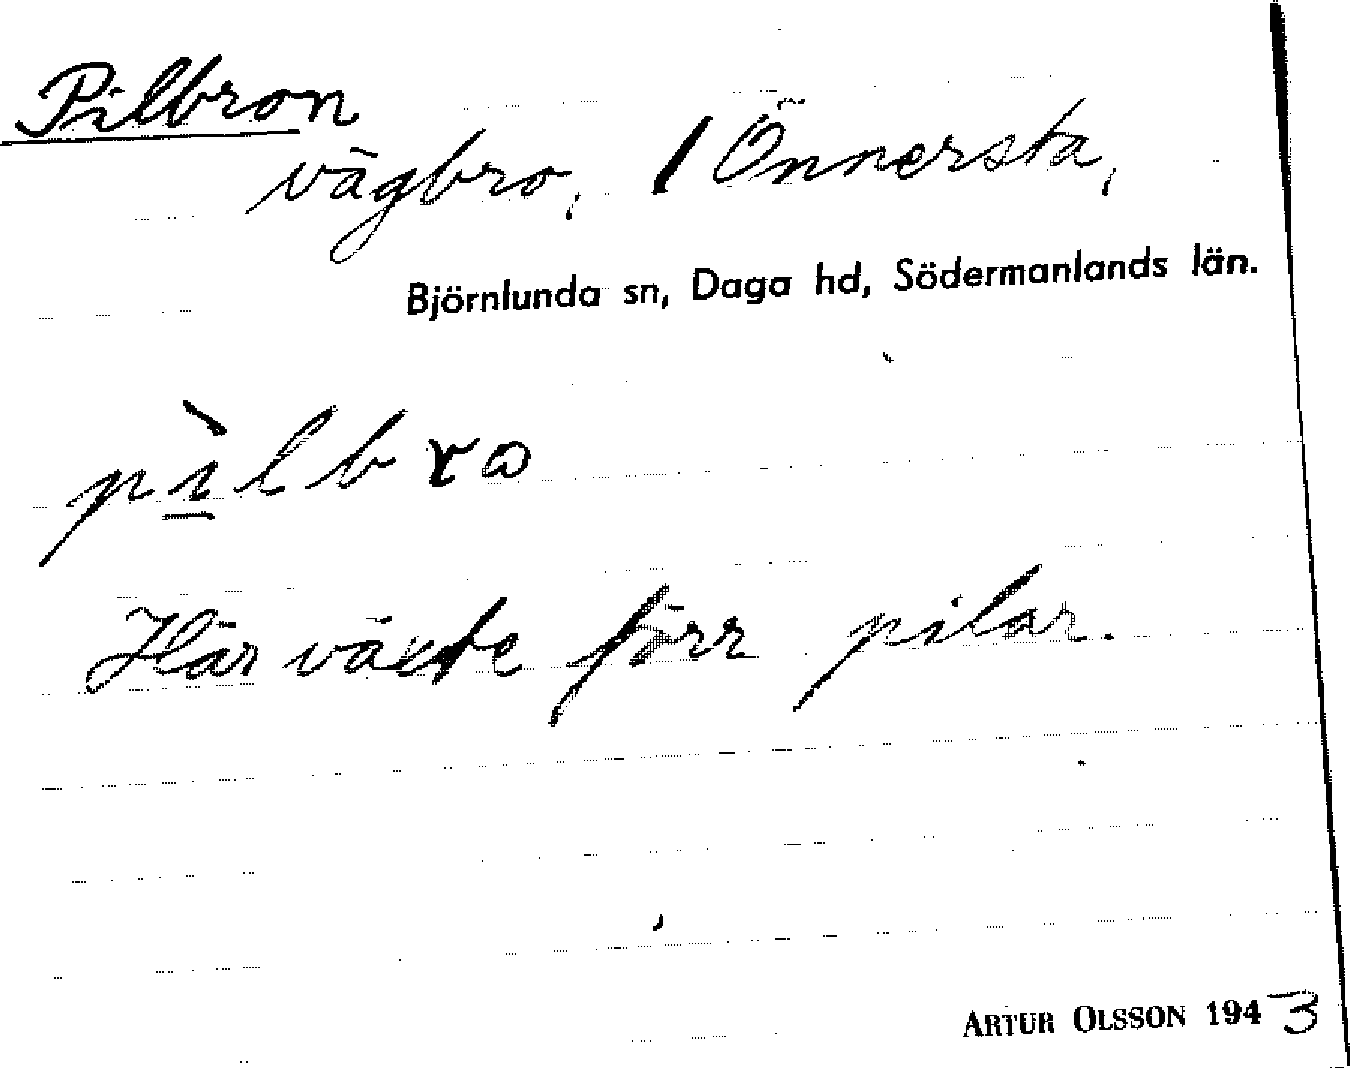 Pilbron
vägbro, / Önnersta,
Björnlunda sn, Daga hd, Södermanlands län.
pìlbrω
Här växte förr pilar.
ARTUR OLSSON 1943